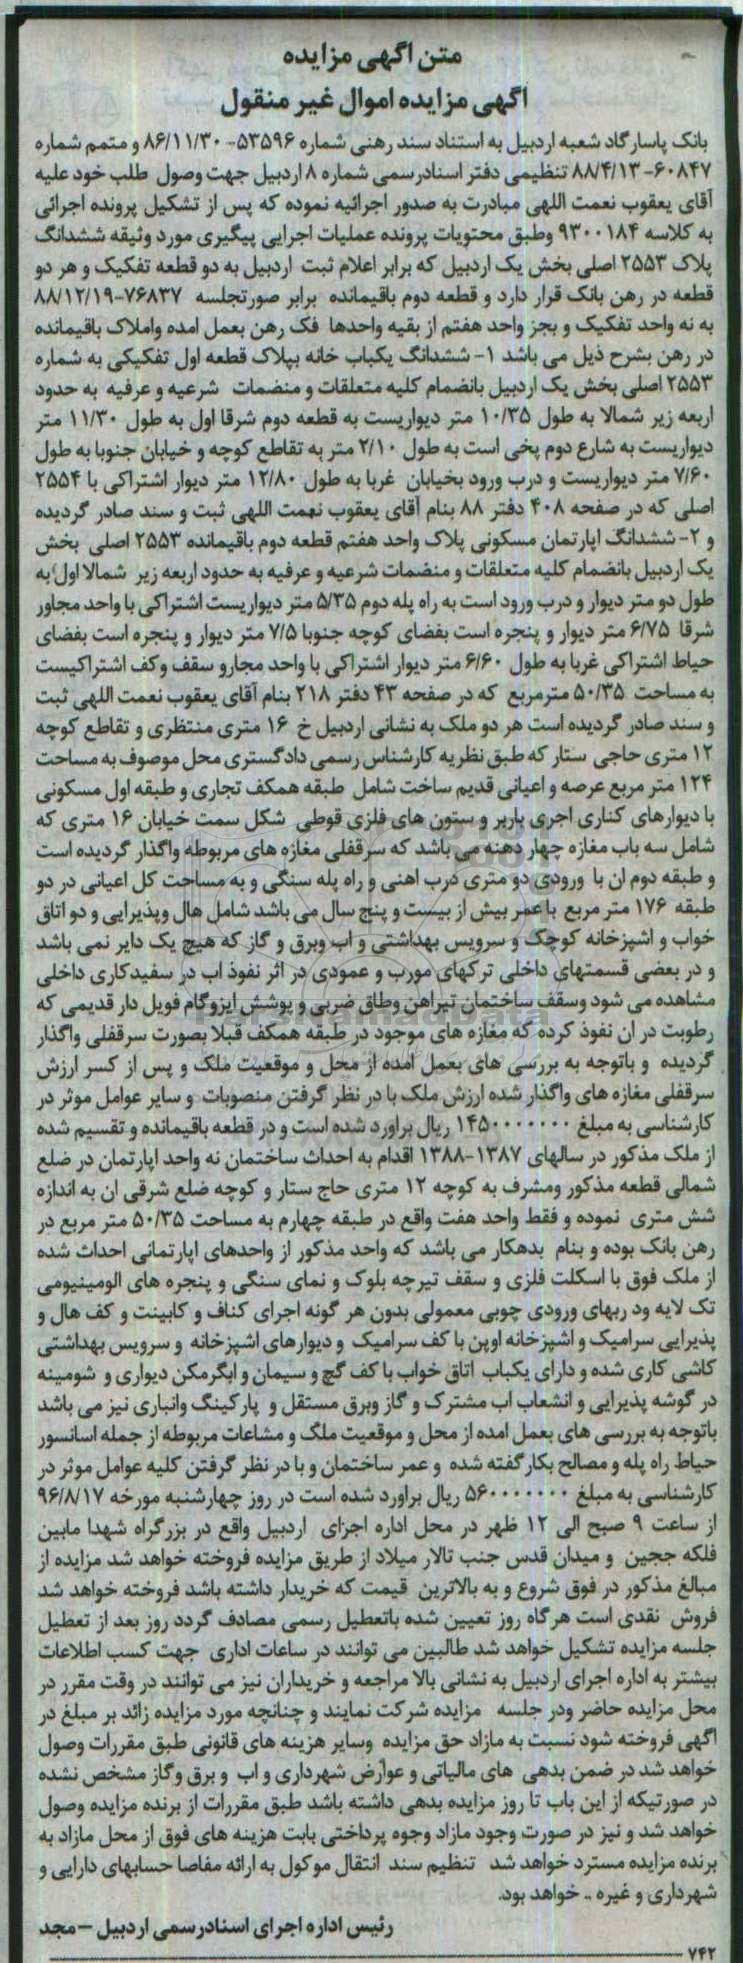 متن آگهی مزایده
آگهی مزایده اموال غیر منقول
بانک پاسارگاد شعبه اردبیل به استناد سند رهنی شماره ۵۳۵۹۶- ۸۶/۱۱/۳۰ و متمم شماره
۶۰۸۴۷- ۸۸/۴/۱۳ تنظیمی دفتر اسنادرسمی شماره ۸ اردبیل جهت وصول طلب خود علیه
آقای یعقوب نعمت اللهی مبادرت به صدور اجرائیه نموده که پس از تشکیل پرونده اجرائی
به کلاسه ۹۳۰۰۱۸۴ وطبق محتویات پرونده عملیات اجرایی پیگیری مورد وثیقه ششدانگ
پلاک ۲۵۵۳ اصلی بخش یک اردبیل که برابر اعلام ثبت اردبیل به دو قطعه تفکیک و هر دو
قطعه در رهن بانک قرار دارد و قطعه دوم باقیمانده برابر صورتجلسه ۷۶۸۳۷-۸۸/۱۲/۱۹
به نه واحد تفکیک و بجز واحد هفتم از بقیه واحدها فک رهن بعمل امده واملاک باقیمانده
در رهن بشرح ذیل می باشد ۱- ششدانگ یکباب خانه بپلاک قطعه اول تفکیکی به شماره
۲۵۵۳ اصلی بخش یک اردبیل بانضمام کلیه متعلقات و منضمات شرعیه و عرفیه به حدود
اربعه زیر شمالا به طول ۱۰/۳۵ متر دیواریست به قطعه دوم شرقا اول به طول ۱۱/۳۰ متر
دیواریست به شارع دوم پخی است به طول ۲/۱۰ متر به تقاطع کوچه و خیابان جنوبا به طول
۷/۶۰ متر دیواریست و درب ورود بخیابان غربا به طول ۱۲/۸۰ متر دیوار اشتراکی با ۲۵۵۴
اصلی که در صفحه ۴۰۸ دفتر ۸۸ بنام آقای یعقوب نعمت اللهی ثبت و سند صادر گردیده
و ۲- ششدانگ اپارتمان مسکونی پلاک واحد هفتم قطعه دوم باقیمانده ۲۵۵۳ اصلی بخش
یک اردبیل بانضمام کلیه متعلقات و منضمات شرعیه و عرفیه به حدود اربعه زیر شمالا اول به
طول دو متر دیوار و درب ورود است به راه پله دوم ۵/۳۵ متر دیواریست اشتراکی با واحد مجاور
شرقا ۶/۷۵ متر دیوار و پنجره است بفضای کوچه جنوبا ۷/۵ متر دیوار و پنجره است بفضای
حیاط اشتراکی غربا به طول ۶/۶۰ متر دیوار اشتراکی با واحد مجارو سقف وکف اشتراکیست
به مساحت ۵۰/۳۵ مترمربع که در صفحه ۴۳ دفتر ۲۱۸ بنام آقای یعقوب نعمت اللهی ثبت
و سند صادر گردیده است هر دو ملک به نشانی اردبیل خ ۱۶ متری منتظری و تقاطع کوچه
۱۲ متری حاجی ستار که طبق نظریه کارشناس رسمی دادگستری محل موصوف به مساحت
۱۲۴ متر مربع عرصه و اعیانی قدیم ساخت شامل طبقه همکف تجاری و طبقه اول مسکونی
با دیوارهای کناری اجری باربر و ستون های فلزی قوطی شکل سمت خیابان ۱۶ متری که
شامل سه باب مغازه چهار دهنه می باشد که سرقفلی مغازه های مربوطه واگذار گردیده است
و طبقه دوم ان با ورودی دو متری درب اهنی و راه پله سنگی و به مساحت کل اعیانی در دو
طبقه ۱۷۶ متر مربع با عمر بیش از بیست و پنج سال می باشد شامل هال وپذیرایی و دو اتاق
خواب و اشپزخانه کوچک و سرویس بهداشتی و اب وبرق و گاز که هیچ یک دایر نمی باشد
و در بعضی قسمتهای داخلی ترکهای مورب و عمودی در اثر نفوذ اب در سفیدکاری داخلی
مشاهده می شود وسقف ساختمان تیراهن وطاق ضربی و پوشش ایزوگام فویل دار قدیمی که
رطوبت در ان نفوذ کرده که مغازه های موجود در طبقه همکف قبلا بصورت سرقفلی واگذار
گردیده و باتوجه به بررسی های بعمل امده از محل و موقعیت ملک و پس از کسر ارزش
سرقفلی مغازه های واگذار شده ارزش ملک با در نظر گرفتن منصوبات و سایر عوامل موثر در
کارشناسی به مبلغ ۱۴۵۰۰۰۰۰۰۰ ریال براورد شده است و در قطعه باقیمانده و تقسیم شده
از ملک مذکور در سالهای ۱۳۸۷-۱۳۸۸ اقدام به احداث ساختمان نه واحد اپارتمان در ضلع
شمالی قطعه مذکور ومشرف به کوچه ۱۲ متری حاج ستار و کوچه ضلع شرقی ان به اندازه
شش متری نموده و فقط واحد هفت واقع در طبقه چهارم به مساحت ۵۰/۳۵ متر مربع در
رهن بانک بوده و بنام بدهکار می باشد که واحد مذکور از واحدهای اپارتمانی احداث شده
از ملک فوق با اسکلت فلزی و سقف تیرچه بلوک و نمای سنگی و پنجره های الومینیومی
تک لایه ود ربهای ورودی چوبی معمولی بدون هر گونه اجرای کناف و کابینت و کف هال و
پذیرایی سرامیک و اشپزخانه اوپن با کف سرامیک و دیوارهای اشپزخانه و سرویس بهداشتی
کاشی کاری شده و دارای یکباب اتاق خواب با کف گچ و سیمان و ابگرمکن دیواری و شومینه
در گوشه پذیرایی و انشعاب اب مشترک و گاز وبرق مستقل و پارکینگ وانباری نیز می باشد
باتوجه به بررسی های بعمل امده از محل و موقعیت ملک و مشاعات مربوطه از جمله اسانسور
حیاط راه پله و مصالح بکار گفته شده و عمر ساختمان و با در نظر گرفتن کلیه عوامل موثر در
کارشناسی به مبلغ ۵۶۰۰۰۰۰۰۰ ریال براورد شده است در روز چهارشنبه مورخه ۹۶/۸/۱۷
از ساعت ۹ صبح الی ۱۲ ظهر در محل اداره اجرای اردبیل واقع در بزرگراه شهدا مابین
فلکه ججین و میدان قدس جنب تالار میلاد از طریق مزایده فروخته خواهد شد مزایده از
مبالغ مذکور در فوق شروع و به بالاترین قیمت که خریدار داشته باشد فروخته خواهد شد
فروش نقدی است هرگاه روز تعیین شده باتعطیل رسمی مصادف گردد روز بعد از تعطیل
جلسه مزایده تشکیل خواهد شد طالبین می توانند در ساعات اداری جهت کسب اطلاعات
بیشتر به اداره اجرای اردبیل به نشانی بالا مراجعه و خریداران نیز می توانند در وقت مقرر در
محل مزایده حاضر ودر جلسه مزایده شرکت نمایند و چنانچه مورد مزایده زائد بر مبلغ در
اگهی فروخته شود نسبت به مازاد حق مزایده وسایر هزینه های قانونی طبق مقررات وصول
خواهد شد در ضمن بدهی های مالیاتی و عوارض شهرداری و اب و برق وگاز مشخص نشده
در صورتیکه از این باب تا روز مزایده بدهی داشته باشد طبق مقررات از برنده مزایده وصول
خواهد شد و نیز در صورت وجود مازاد وجوه پرداختی بابت هزینه های فوق از محل مازاد به
برنده مزایده مسترد خواهد شد تنظیم سند انتقال موکول به ارائه مفاصا حسابهای دارایی و
شهرداری و غیره .. خواهد بود.
رئیس اداره اجرای اسنادرسمی اردبیل – مجد
۷۴۲